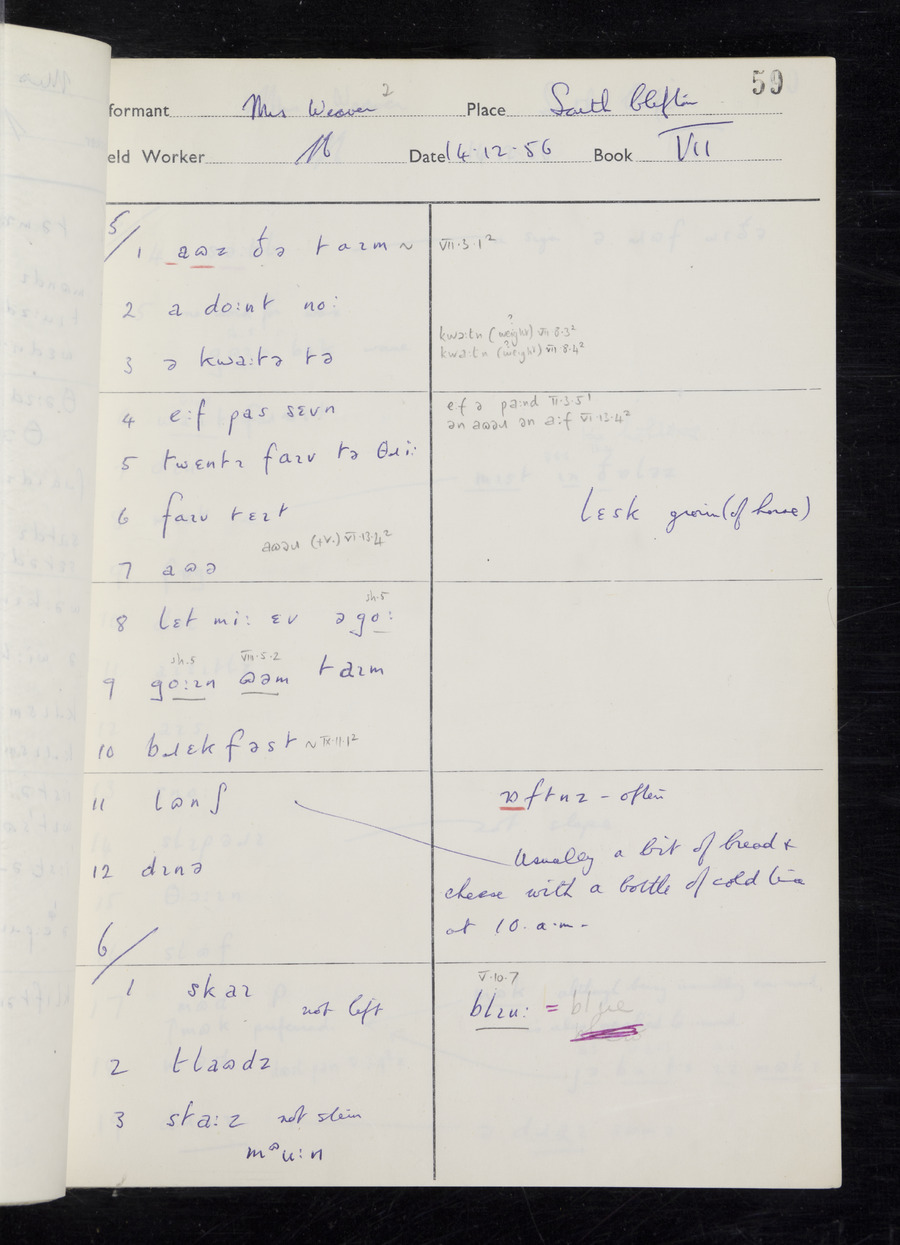 59
formant Mrs Weaver 2 Place South Clifton
eld Worker Date 14·12·56 Book VII
5/
1 aɷz ðə taɪm ~ VII·3·1²
2 a do:nt no:
kwɛ:tn (weight) VII·8·3²
3 ə kwa:tə tə
kwɛ:tn (weight) VII·8·4²
4 e:f pas sɛvn
ef ə pa:nd VII·3·5¹
ən aɷəɹ ən a:f VI·13·4²
5 twɛntɪ faɪv tə θɹi:
6 faɪv tɛɪt
lɛsk groin (of horse)
aɷəɹ (+V.) VI·13·4²
7 aɷə
sh.5
8 lɛt mi: ɛv ə go:
sh.5 VIII·5·2
9 go:ɪn ɷəm taɪm
10 bɹɛkfəst ~ IX·11·1²
11 lɒnʃ
ɒftnz - often
12 dɪnə
Usually a bit of bread +
cheese with a bottle of cold tea
at 10.a.m.
6/
1 skaɪ
not lift
V·10·7
blɪu: = blue
2 tlaɷdz
3 sta:z not stein
mᵊu:n